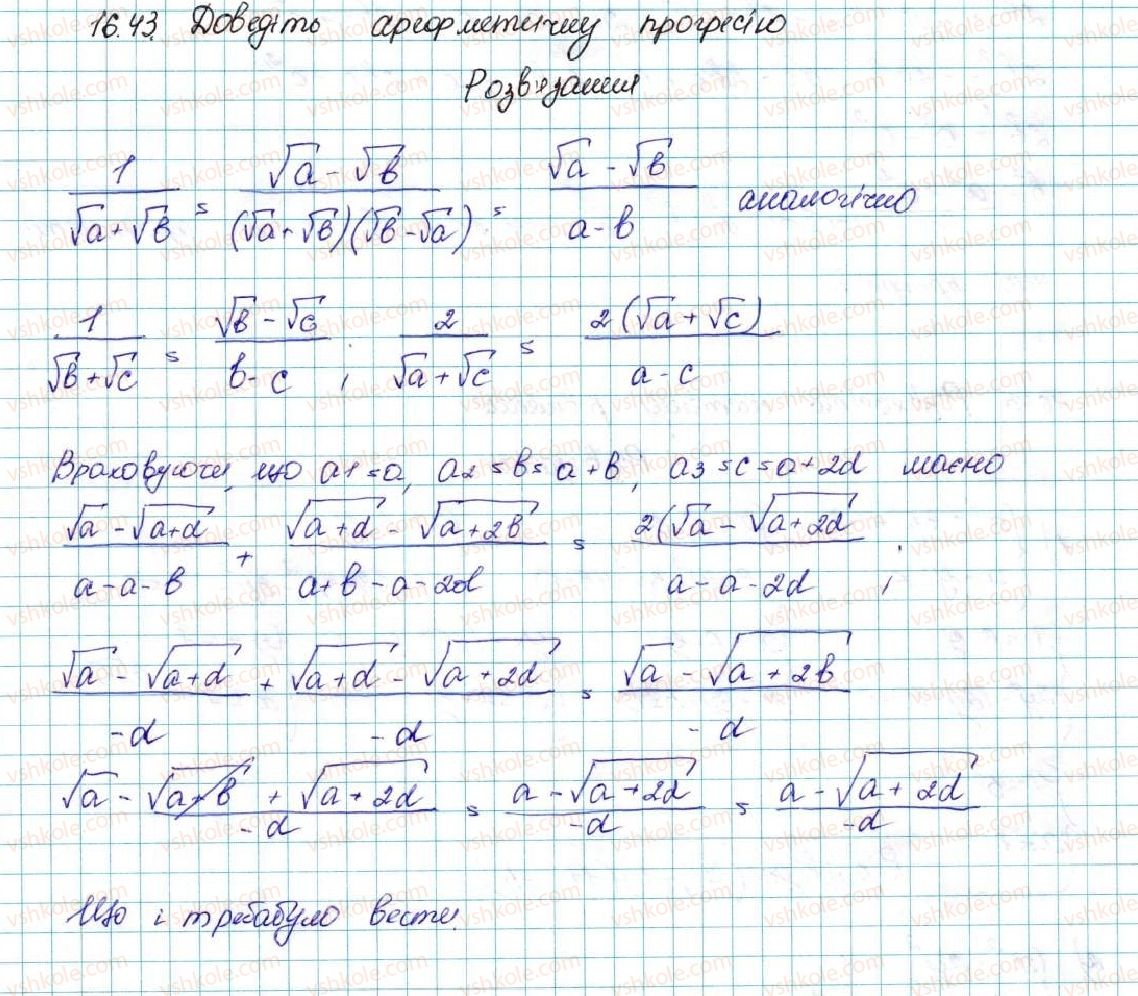 16.43. Доведіть арефметичну прогресію
Розвязання
1/(√a + √b) = (√a - √b)/((√a + √b)(√b - √a)) = (√a - √b)/(a - b) аналогічно
1/(√b + √c) = (√b - √c)/(b - c) ; 2/(√a + √c) = 2(√a + √c)/(a - c)
Враховуючи, що a1 = a, a2 = b = a + b, a3 = c = a + 2d маємо
(√a - √(a+d))/(a - a - b) + (√(a+d) - √(a+2b))/(a + b - a - 2d) = 2(√a - √(a+2d)/(a - a - 2d) ;
(√a - √(a+d))/(-d) + (√(a+d) - √(a+2d))/(-d) = (√a - √(a+2b))/(-d)
(√a - √(a+b) + √(a+2d))/(-d) = (a - √(a+2d))/(-d) = (a - √(a+2d))/(-d)
Що і требабуло вести.